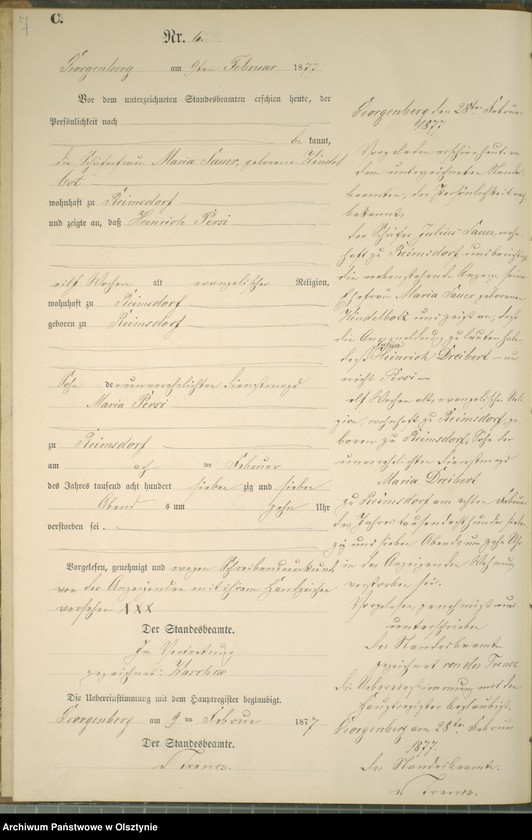 7
C.
Nr. 6.
Georgenberg am 9ten Februar 1877
Vor dem unterzeichneten Standesbeamten erschien heute, der
Persönlichkeit nach
be kannt,
die Schäferfrau Maria Sauer, geborene
wohnhaft zu Reimsdorf
und zeigte an, daß Heinrich Persi
elf Wochen alt evangelischer Religion,
wohnhaft zu Reimsdorf
geboren zu Reimsdorf
Sohn der unverehelichten Dienstmagd
Maria Persi
zu Reimsdorf
am ach ten Februar
des Jahres tausend acht hundert sieben zig und sieben
Abends um zehn Uhr
verstorben sei.
Vorgelesen, genehmigt und wegen Schreibensunkunde
von der Anzeigenden mit ihrem Handzeichen
versehen XXX
Der Standesbeamte.
In Vertretung
gezeichnet:
Die Uebereinstimmung mit dem Hauptregister beglaubigt.
Georgenberg am 9 ten Februar 1877
Der Standesbeamte.
Georgenberg den 28ten Februar
1877
Vorgeladen erschien heute vor
dem unterzeichneten Standes-
beamten, der Persönlichkeit nach
bekannt,
der Schäfer Julius Sauer, wohn-
haft zu Reimsdorf und berichtigt
die nebenstehende Anzeige seiner
Ehefrau Maria Sauer, geborene
und zeigt an, daß
die Anzeige zu lauten habe
daß Heinrich Dreibert –
nicht Persi –
elf Wochen alt, evangelischer Reli-
gion, wohnhaft zu Reimsdorf, ge-
boren zu Reimsdorf, Sohn der
unverehelichten Dienstmagd
Maria Dreibert
zu Reimsdorf am achten Februar
des Jahres tausend acht hundert sieben
zig und sieben Abends um zehn Uhr
in der Anzeigenden Wohnung
verstorben sei.
Vorgelesen, genehmigt und
unterschrieben
Der Standesbeamte
gezeichnet
Die Uebereinstimmung mit dem
Hauptregister beglaubigt.
Georgenberg am 28ten Februar
1877.
Der Standesbeamte.
Archiwum Państwowe w Olsztynie